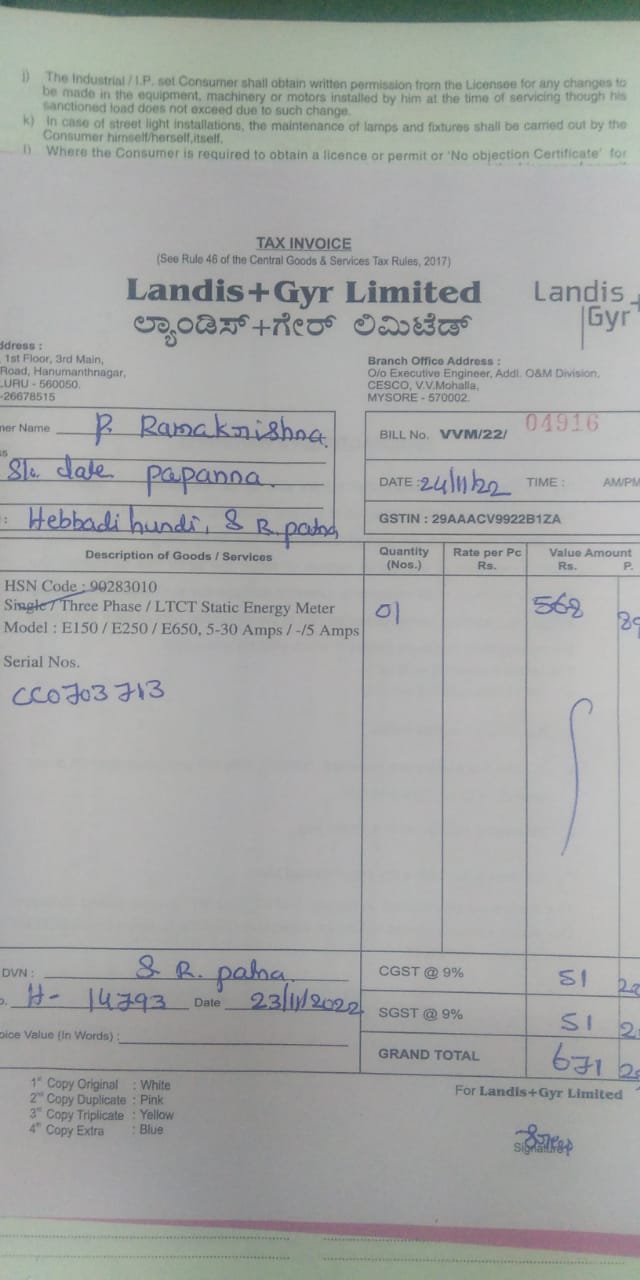 j) The Industrial / I.P. set Consumer shall obtain written permission from the Licensee for any changes to
be made in the equipment, machinery or motors installed by him at the time of servicing though his
sanctioned load does not exceed due to such change.
k) In case of street light installations, the maintenance of lamps and fixtures shall be carried out by the
Consumer himself/herself,itself.
l) Where the Consumer is required to obtain a licence or permit or 'No objection Certificate' for
TAX INVOICE
(See Rule 46 of the Central Goods & Services Tax Rules, 2017)
Landis+Gyr Limited
Landis+
Gyr
ಲ್ಯಾಂಡಿಸ್+ಗೇರ್ ಲಿಮಿಟೆಡ್
ddress :
1st Floor, 3rd Main,
Road, Hanumanthnagar,
LURU - 560050.
-26678515
Branch Office Address :
O/o Executive Engineer, Addl. O&M Division,
CESCO, V.V.Mohalla,
MYSORE - 570002.
ner Name P. Ramakrishna
S/o. date papanna.
Hebbadi hundi, S R. patna
BILL No. VVM/22/ 04916
DATE : 24/11/22 TIME : AM/PM
GSTIN : 29AAACV9922B1ZA
Description of Goods / Services
Quantity (Nos.)
Rate per Pc Rs.
Value Amount Rs. P.
HSN Code : 90283010
Single / Three Phase / LTCT Static Energy Meter
Model : E150 / E250 / E650, 5-30 Amps / -/5 Amps
01 568 89
Serial Nos.
CC0703713
DVN : S R. patna.
H- 14793 Date 23/11/2022
oice Value (In Words) :
CGST @ 9% 51
SGST @ 9% 51
GRAND TOTAL 671
1st Copy Original : White
2nd Copy Duplicate : Pink
3rd Copy Triplicate : Yellow
4th Copy Extra : Blue
For Landis+Gyr Limited
Signature